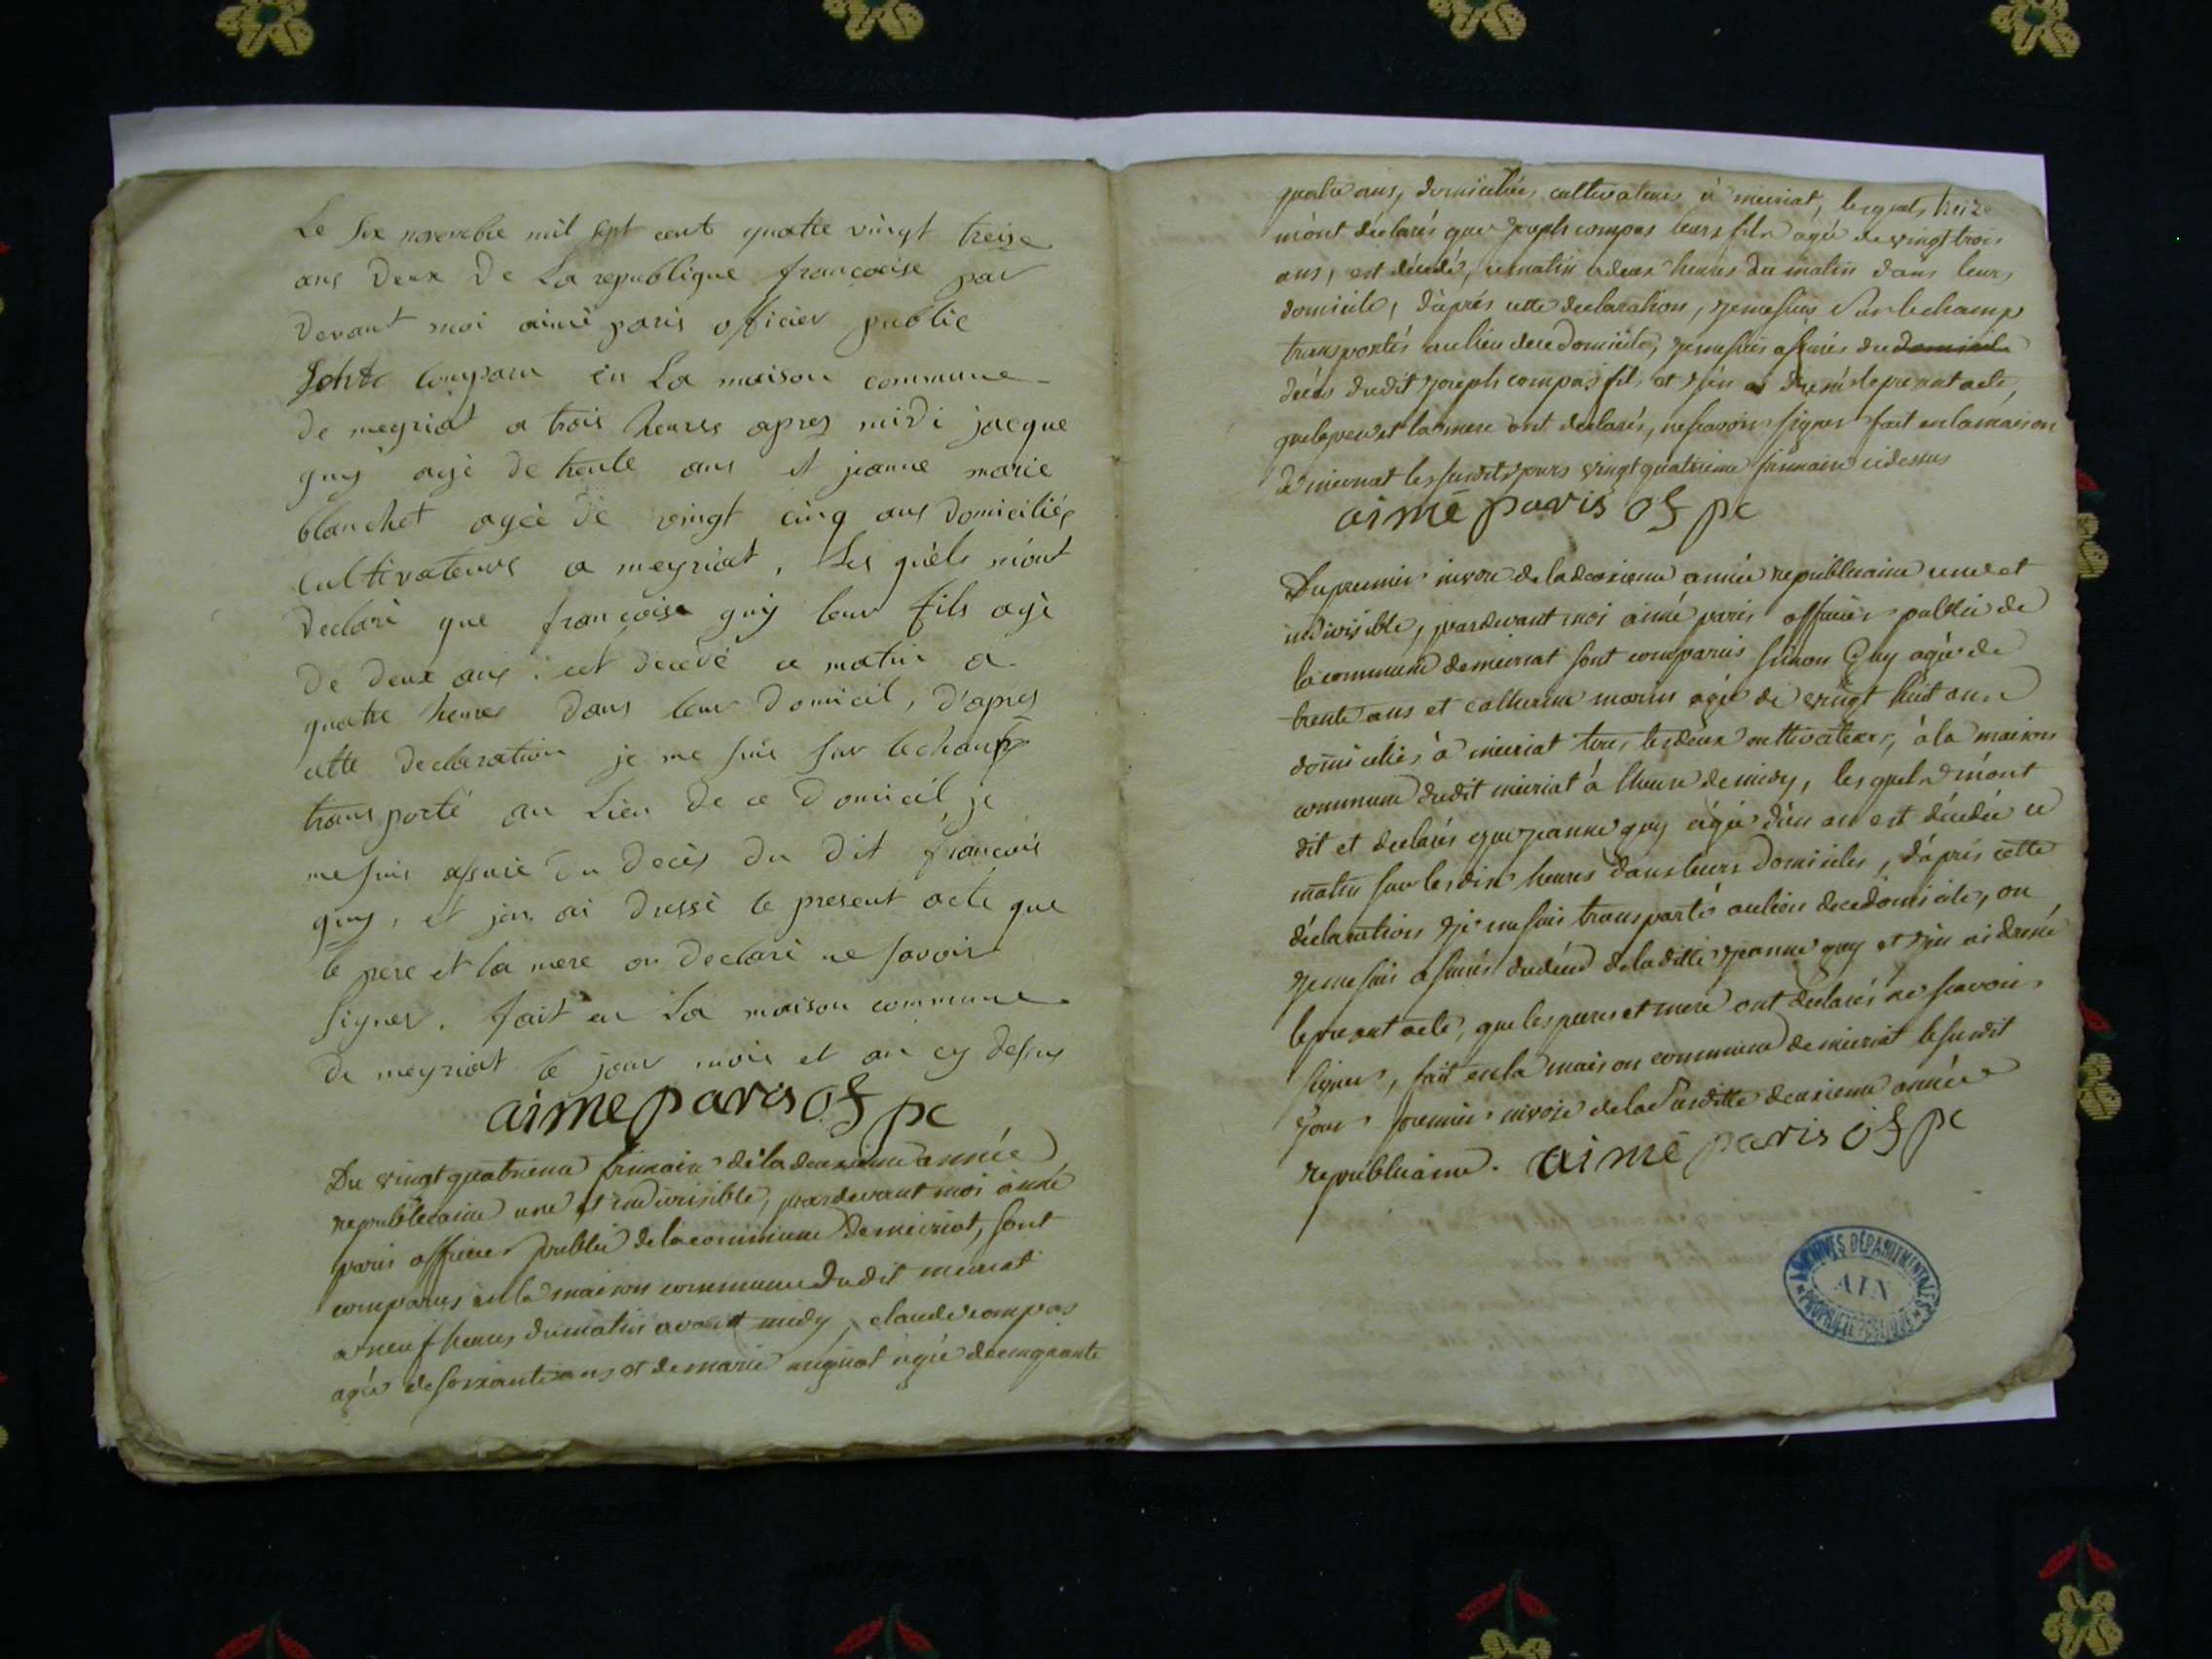 Le six novembre mil sept cent quatte vingt treise
ans Deux De La republique françoise par
Devant moi aimé paris officier public
comparu en La maison commune
De meyriat a trois heures apres midi jacque
guy agé De trente ans et jeanne marie
blanchet agée De vingt cinq ans Domiciliés
cultivateurs a meyriat, Les quels m'ont
Declaré que françoise guy leur fils agé
De Deux ans. est decedé ce matin a
quatre heures Dans leur Domicil, D'apres
cette Declaration je me suis sur le champ
transporté au Lieu De ce Domicil, je
me suis assuré Du Decès Du Dit françois
guy, et jen ai Dressé le present acte que
le pere et la mere on Declaré ne savoir
signer. fait en La maison commune
De meyriat le jour mois et an cy dessus
aime paris of pc
Du vingt quatrieme frimaire de la deuxieme année
republicaine une et indivisible, pardevant moi aimé
paris officier public de la commune de meiriat, sont
comparus en la maison commune dudit meiriat
a neuf heures du matin avant midy, claude compas
agée de soixante ans et de marie agée de cinquante
quatre ans, domiciliés cultivateurs à meiriat, lesquels
m'ont déclarés que joseph compas leurs fils agée de vingt trois
ans, est décedé, ce matin a deux heures du matin dans leurs
domicile, d'après cette declaration, je me suis sur le champ
transportés au lieu de ce domicile, je me suis assurés du domicile
décés dudit joseph compas fils et j'en ai dressé le present acte,
que le pere et la mere ont declarés, ne scavoir signer fait en la maison
de meiriat les susdits jours vingt quatrieme frimaire cidessus
aimé paris of pc
Du premier nivose de la deuxieme année republicaine une et
indivisible, pardevant moi aimé paris officier public de
la commune de meiriat sont comparus simon Guy agée de
trente ans et catherine morin agée de vingt huit ans
domiciliés à meiriat tous les deux cultivateurs, à la maison
commune dudit meiriat à l'heure de midy, les quels m'ont
dit et declarés que jeanne guy agée d'un an est décedée ce
matin sur les dix heures dans leurs domiciles, d'après cette
déclaration je me suis transporté au lieu de ce domicile, ou
je me suis assurés du décés de laditte jeanne guy et j'en ai dressé
le present acte, que les peres et mere ont declarés ne scavoir
signer, fait en la maison commune de meiriat le susdit
jour premier nivose de la susditte deuxieme année
republicaine. aimé paris of pc
ARCHIVES DÉPARTEMENTALES
AIN
PROPRIÉTÉ PUBLIQUE